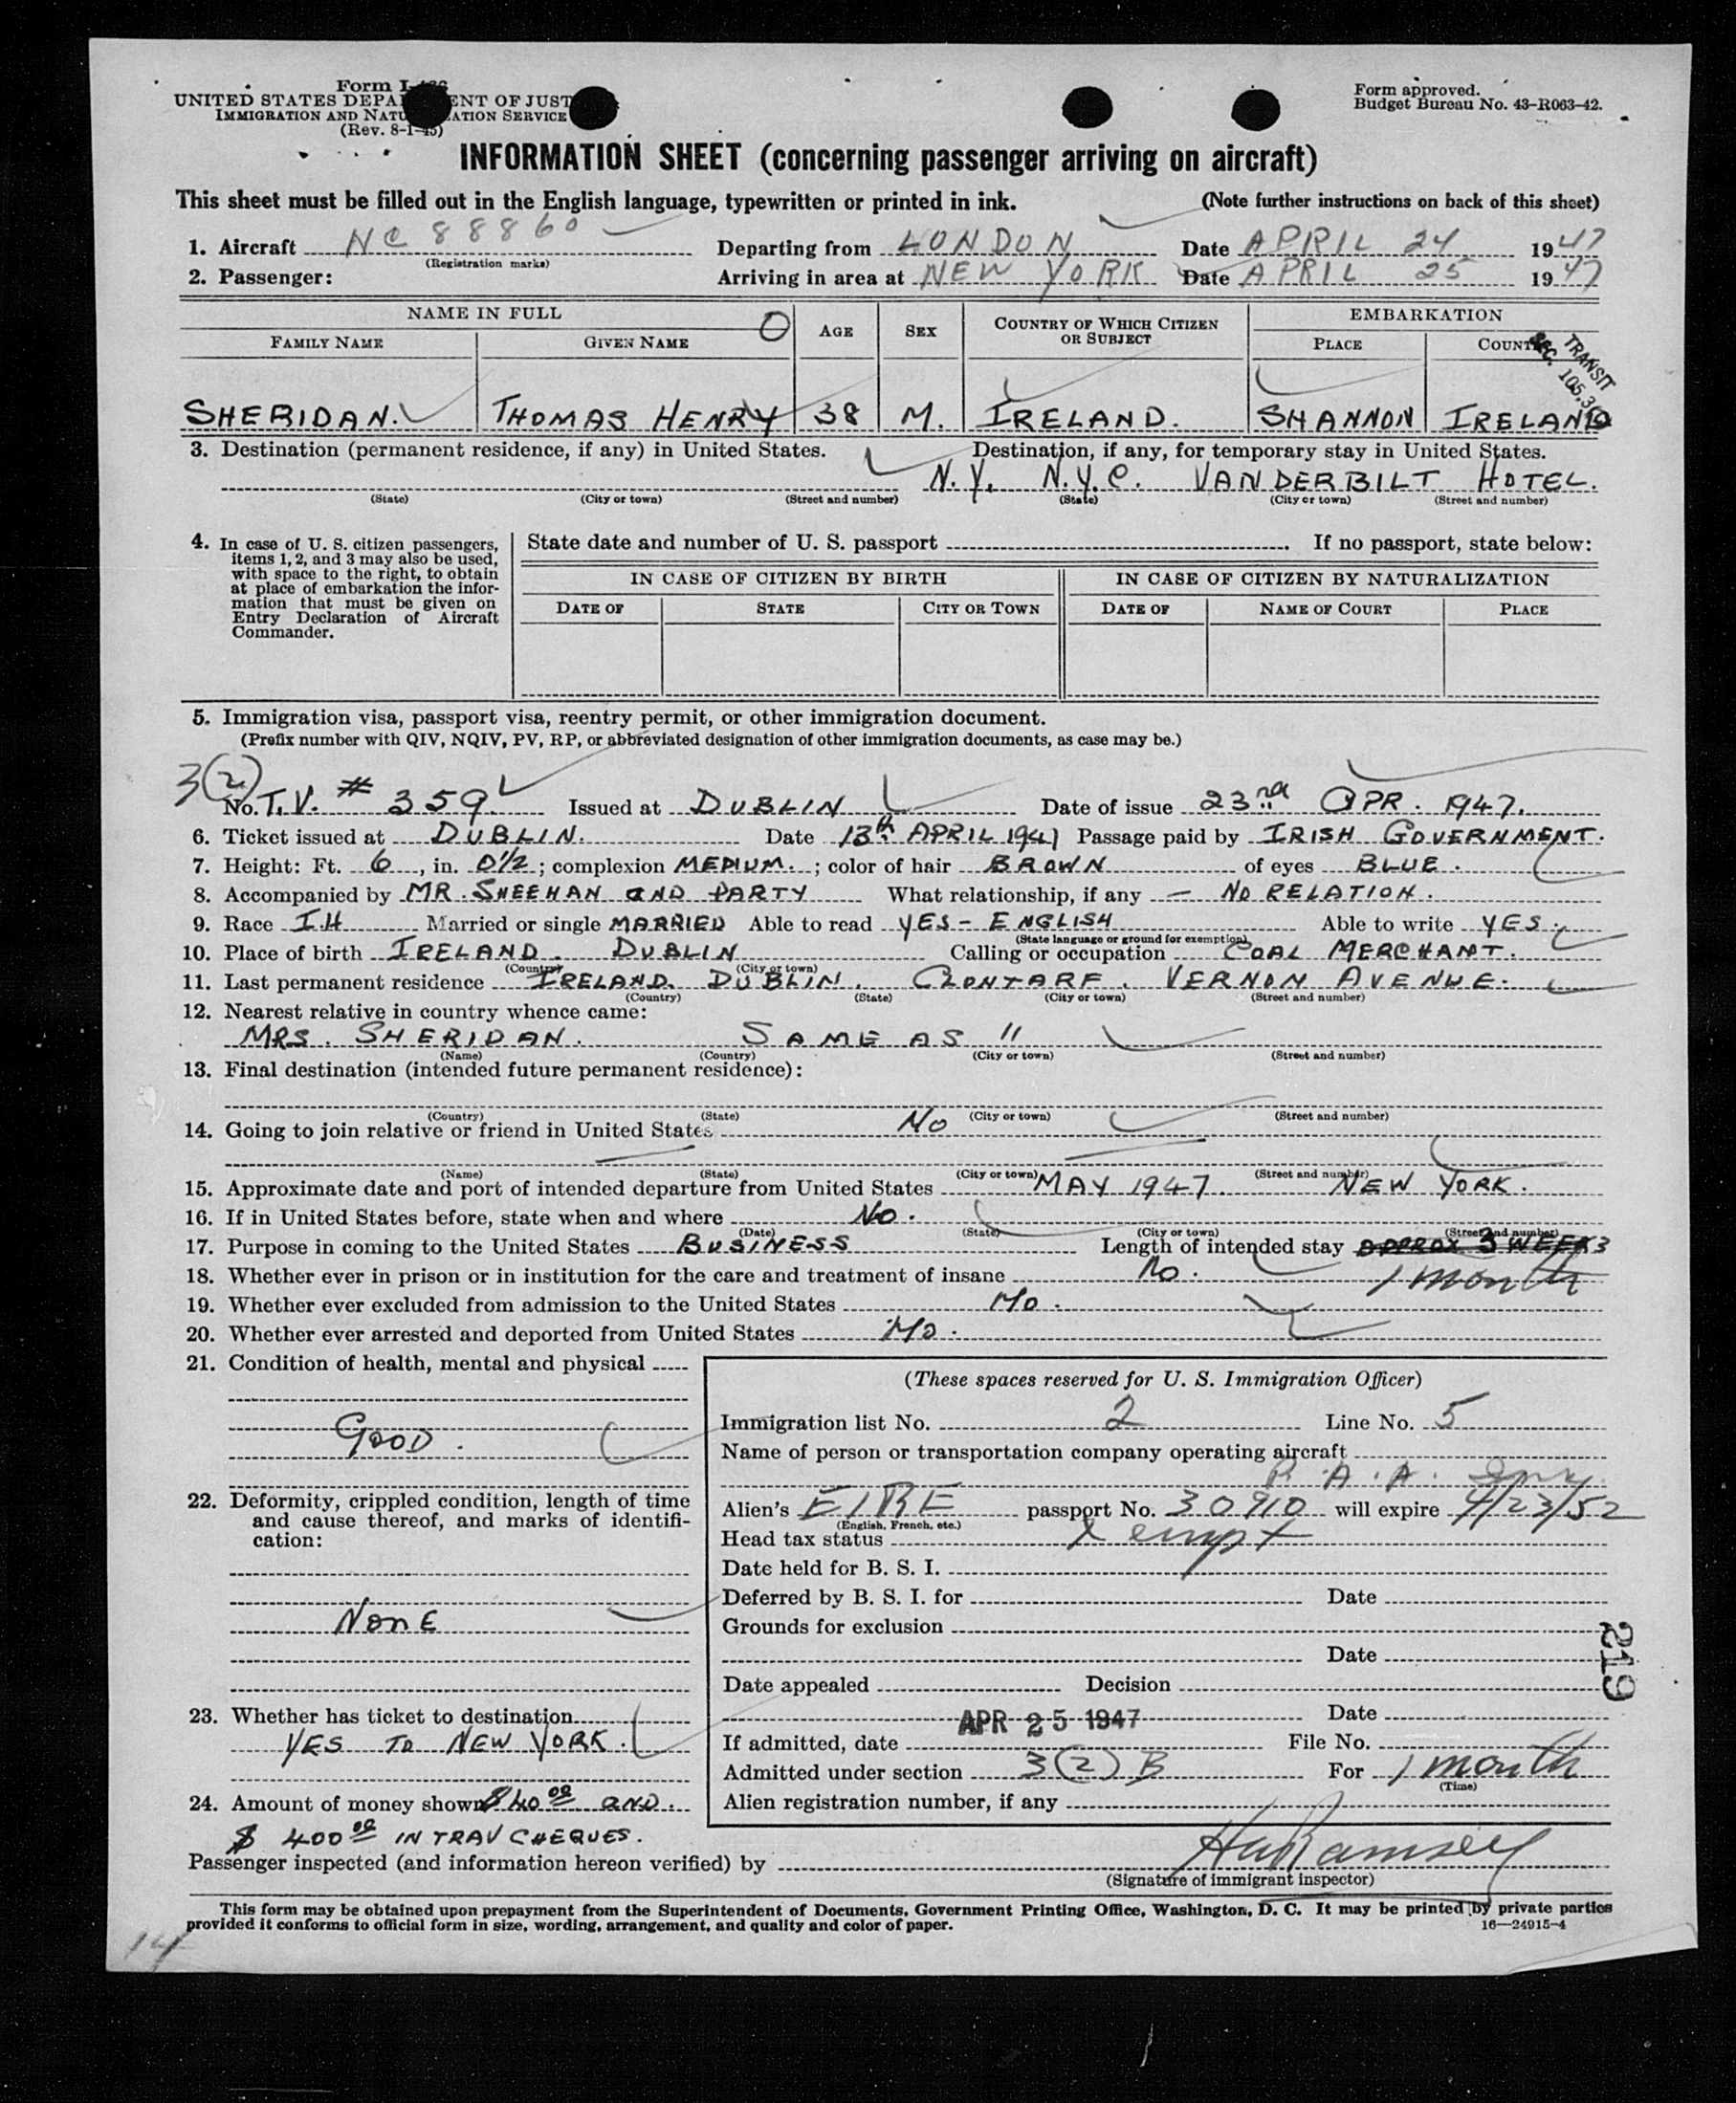 Form I-466
UNITED STATES DEPARTMENT OF JUSTICE
IMMIGRATION AND NATURALIZATION SERVICE
(Rev. 8-1-45)
Form approved.
Budget Bureau No. 43-R063-42.
INFORMATION SHEET (concerning passenger arriving on aircraft)
This sheet must be filled out in the English language, typewritten or printed in ink. (Note further instructions on back of this sheet)
1. Aircraft NC 88860 Departing from LONDON Date APRIL 24 1947
(Registration marks)
2. Passenger: Arriving in area at NEW YORK Date APRIL 25 1947
NAME IN FULL O AGE SEX COUNTRY OF WHICH CITIZEN OR SUBJECT EMBARKATION
FAMILY NAME GIVEN NAME PLACE COUNTRY
TRANSIT
SEC. 105.3
SHERIDAN. THOMAS HENRY 38 M. IRELAND. SHANNON IRELAND
3. Destination (permanent residence, if any) in United States. Destination, if any, for temporary stay in United States.
N.Y. N.Y.C. VANDERBILT HOTEL.
(State) (City or town) (Street and number) (State) (City or town) (Street and number)
4. In case of U. S. citizen passengers, items 1, 2, and 3 may also be used, with space to the right, to obtain at place of embarkation the information that must be given on Entry Declaration of Aircraft Commander.
State date and number of U. S. passport . If no passport, state below:
IN CASE OF CITIZEN BY BIRTH IN CASE OF CITIZEN BY NATURALIZATION
DATE OF STATE CITY OR TOWN DATE OF NAME OF COURT PLACE
5. Immigration visa, passport visa, reentry permit, or other immigration document.
(Prefix number with QIV, NQIV, PV, RP, or abbreviated designation of other immigration documents, as case may be.)
3(2)
No. T.V. # 359 Issued at DUBLIN Date of issue 23rd APR. 1947.
6. Ticket issued at DUBLIN. Date 13th APRIL 1947 Passage paid by IRISH GOVERNMENT.
7. Height: Ft. 6, in. 0½; complexion MEDIUM.; color of hair BROWN of eyes BLUE.
8. Accompanied by MR. SHEEHAN AND PARTY What relationship, if any — NO RELATION.
9. Race IH Married or single MARRIED Able to read YES - ENGLISH Able to write YES.
(State language or ground for exemption)
10. Place of birth IRELAND. DUBLIN Calling or occupation COAL MERCHANT.
(Country) (City or town)
11. Last permanent residence IRELAND. DUBLIN. CLONTARF. VERNON AVENUE.
(Country) (State) (City or town) (Street and number)
12. Nearest relative in country whence came:
MRS. SHERIDAN. SAME AS 11
(Name) (Country) (City or town) (Street and number)
13. Final destination (intended future permanent residence):
(Country) (State) (City or town) (Street and number)
14. Going to join relative or friend in United States No
(Name) (State) (City or town) (Street and number)
15. Approximate date and port of intended departure from United States MAY 1947. NEW YORK.
16. If in United States before, state when and where No.
(Date) (State) (City or town) (Street and number)
17. Purpose in coming to the United States BUSINESS Length of intended stay APPROX 3 WEEKS
1 month
18. Whether ever in prison or in institution for the care and treatment of insane No.
19. Whether ever excluded from admission to the United States No.
20. Whether ever arrested and deported from United States No.
21. Condition of health, mental and physical
GOOD.
22. Deformity, crippled condition, length of time and cause thereof, and marks of identification:
NONE
23. Whether has ticket to destination
YES TO NEW YORK.
24. Amount of money shown $40.00 AND.
$ 400.00 IN TRAV CHEQUES.
(These spaces reserved for U. S. Immigration Officer)
Immigration list No. 2 Line No. 5
Name of person or transportation company operating aircraft
P.A.A.
Alien's EIRE passport No. 30910 will expire 4/23/52
(English, French, etc.)
Head tax status Xempt
Date held for B. S. I.
Deferred by B. S. I. for Date
Grounds for exclusion
Date
Date appealed Decision
Date
219
If admitted, date APR 25 1947 File No.
Admitted under section 3(2)B For 1 month
(Time)
Alien registration number, if any
Passenger inspected (and information hereon verified) by Ramsey
(Signature of immigrant inspector)
This form may be obtained upon prepayment from the Superintendent of Documents, Government Printing Office, Washington, D. C. It may be printed by private parties
provided it conforms to official form in size, wording, arrangement, and quality and color of paper. 16—24915-4
14